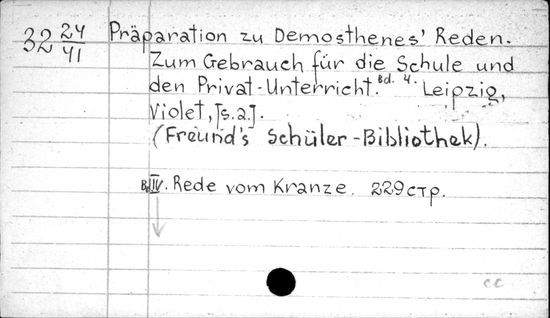 32 24/41 Präparation zu Demosthenes' Reden.
Zum Gebrauch für die Schule und
den Privat-Unterricht. Bd. 4. Leipzig,
Violet, [s.a.].
(Freund's Schüler-Bibliothek).
Bd. IV. Rede vom Kranze. 229 стр.
cc